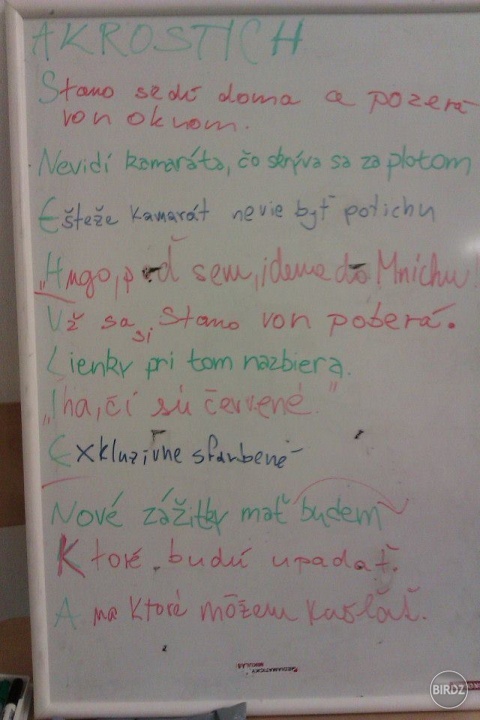 AKROSTICH
Stano sedí doma a pozerá
von oknom.
Nevidí kamaráta, čo skrýva sa za plotom
Ešteže kamarát nevie byť potichu
"Hugo, poď sem, ideme do Mníchu!
Už sa si Stano von poberá.
Lienky pri tom nazbiera.
"Iha, čí sú červené."
Exkluzívne sfarbené
Nové zážitky mať budem
Ktoré budú upadať.
A na ktoré môžem kašľať.
BIRDZ